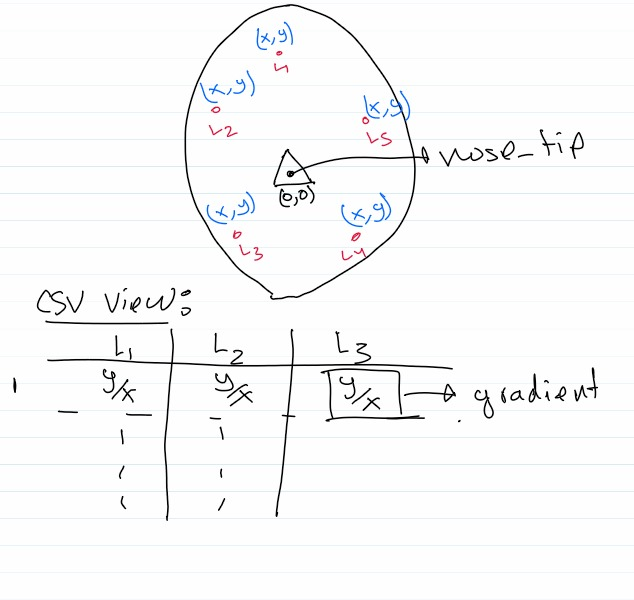 (x,y)
L1
(x,y)
L2
(x,y)
L5
nose_tip
(0,0)
(x,y)
L3
(x,y)
L4
CSV View:
L1 L2 L3
1 y/x y/x y/x gradient